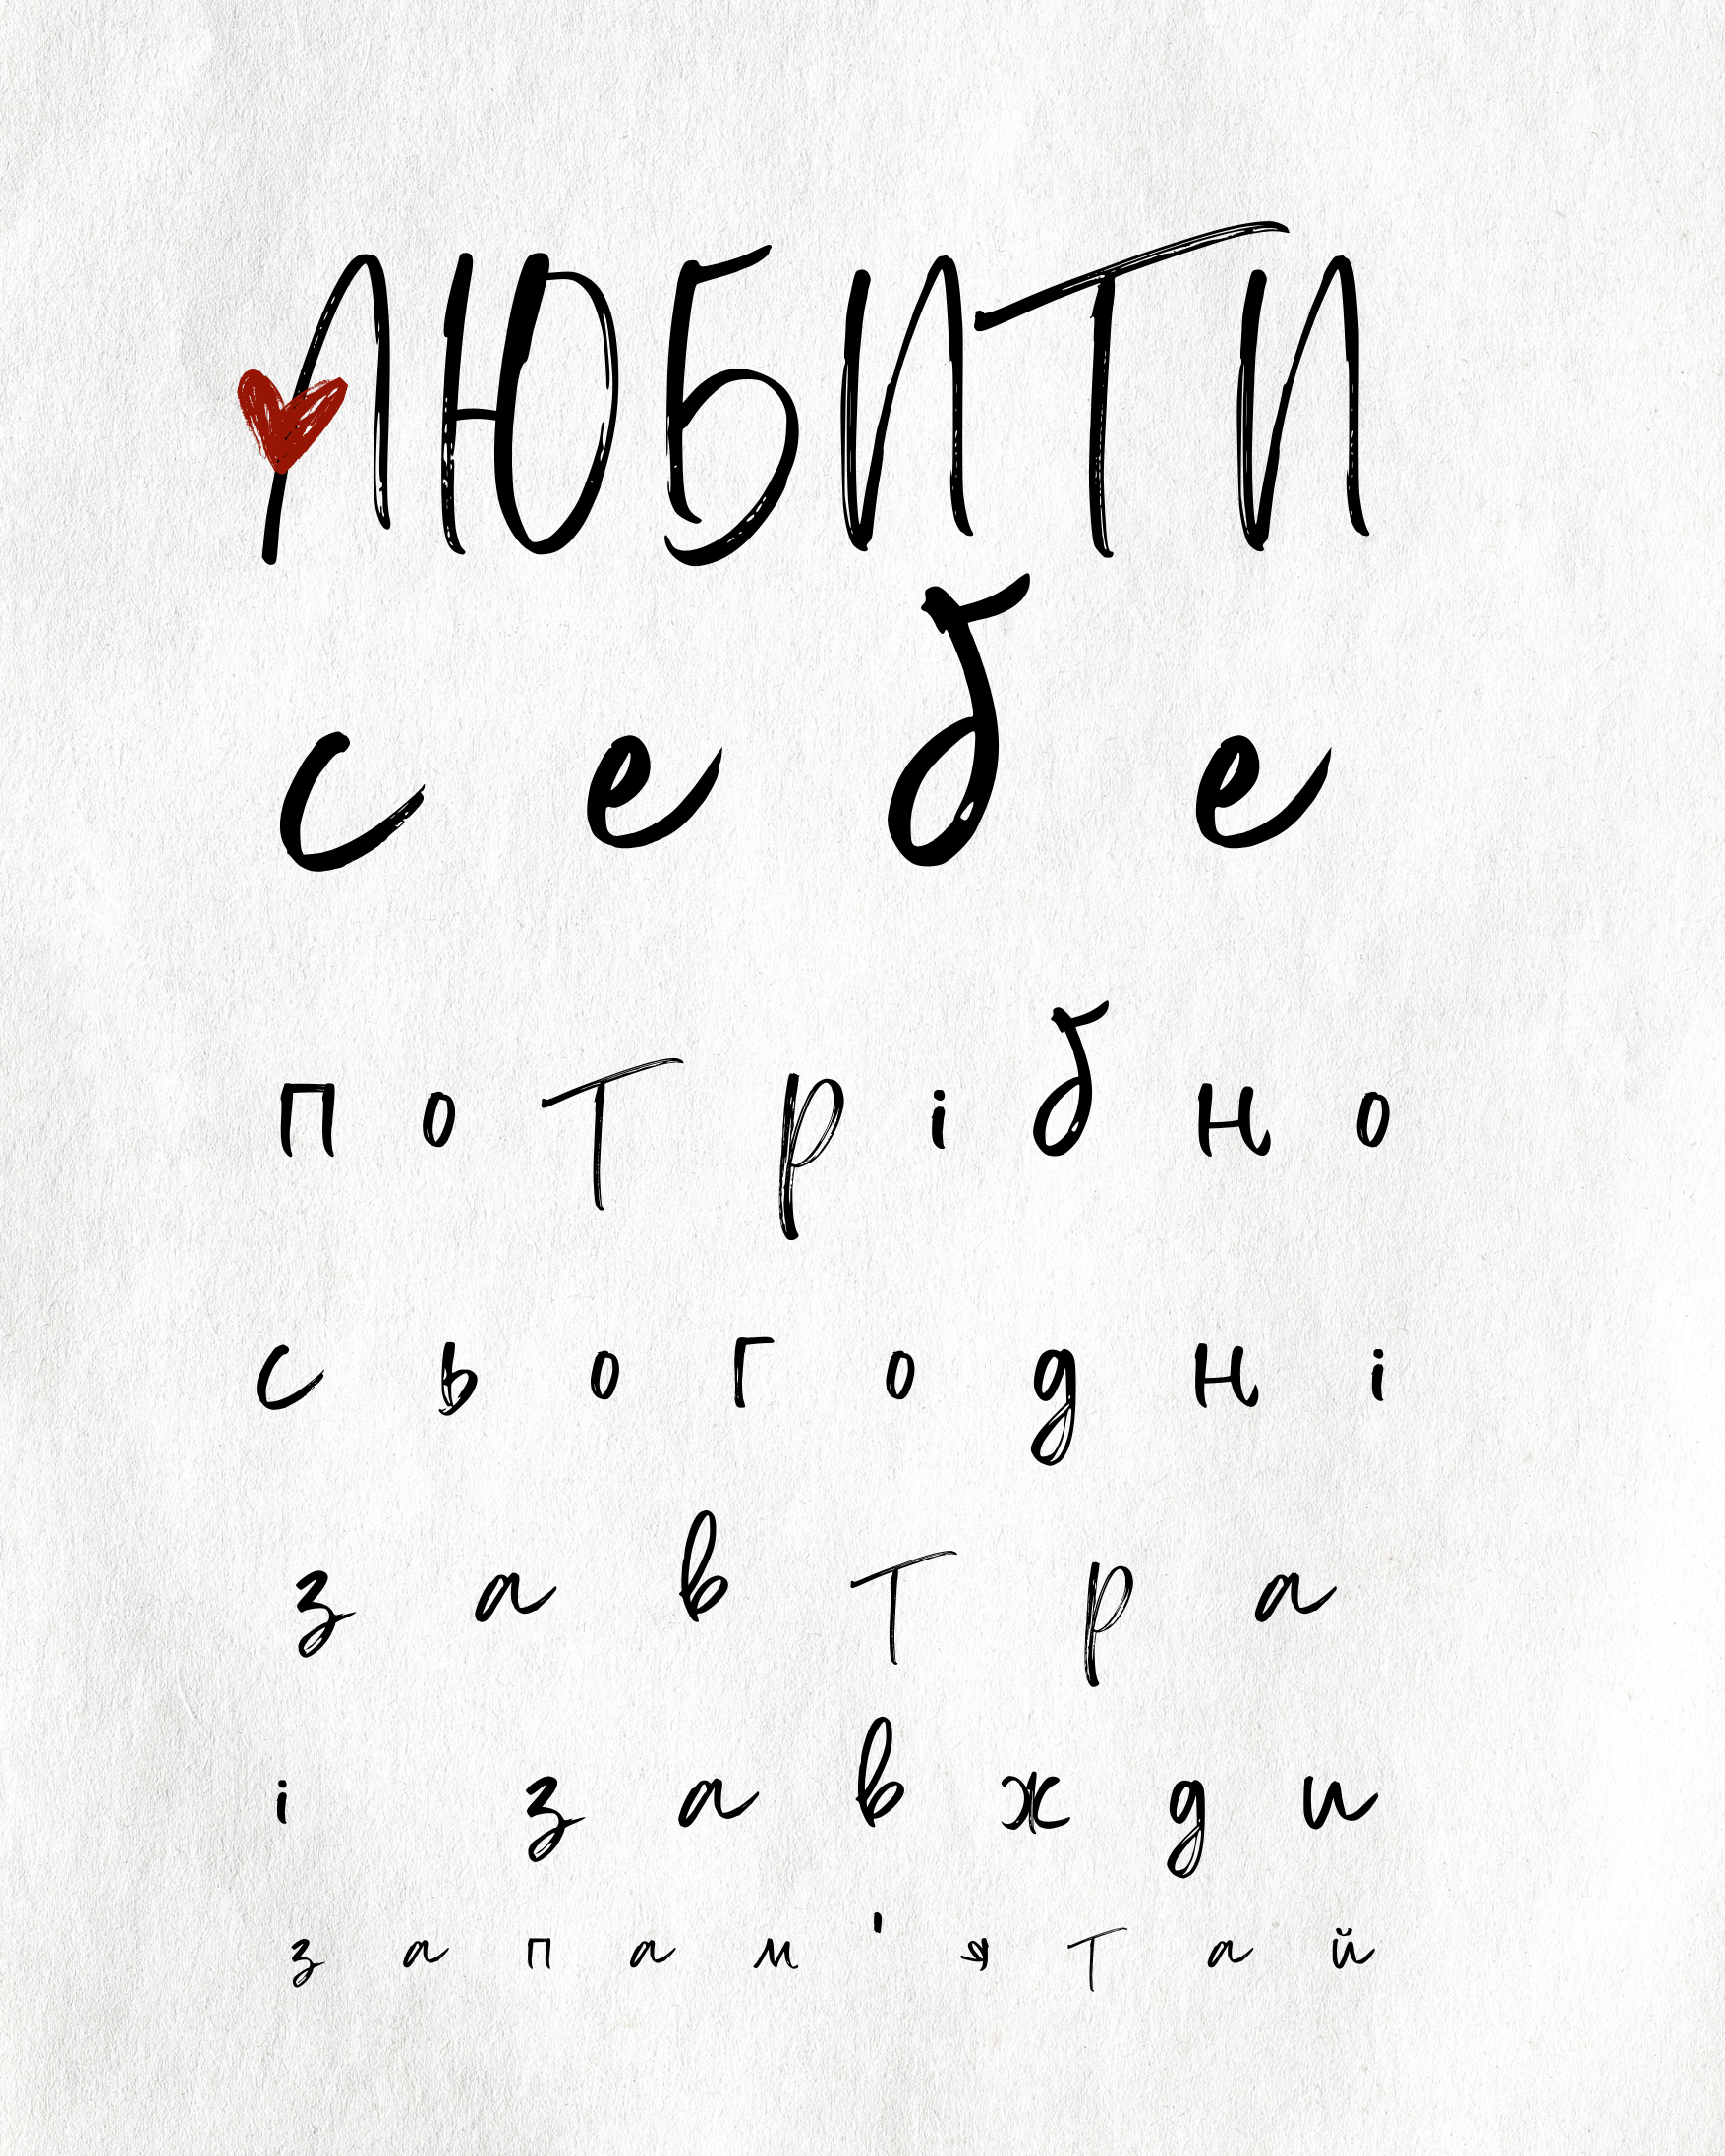 ЛЮБИТИ
себе
потрібно
сьогодні
завтра
і завжди
запам'ятай